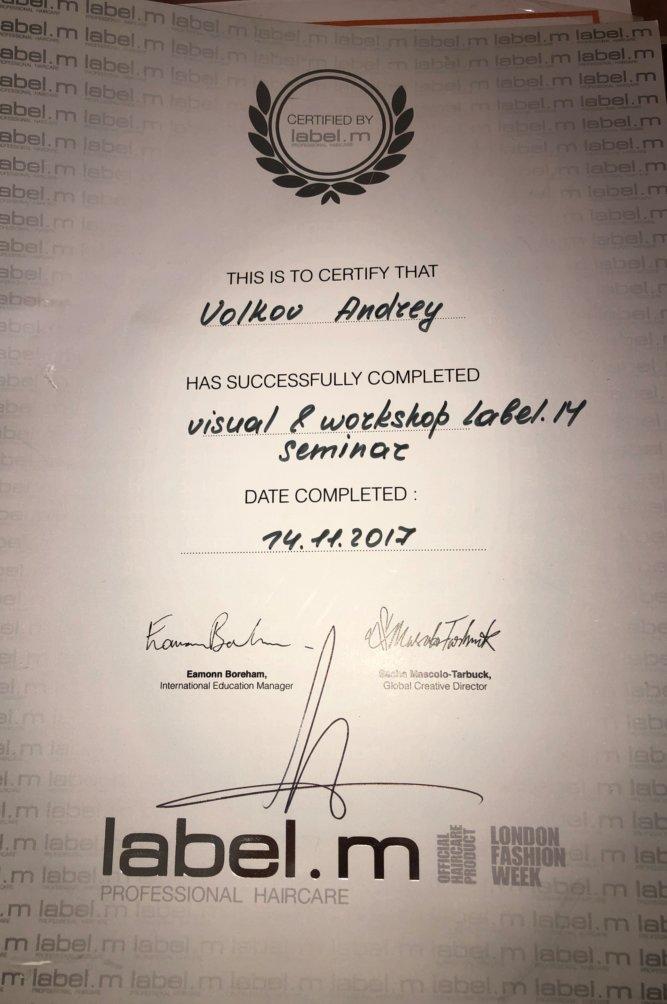 CERTIFIED BY
label.m
PROFESSIONAL HAIRCARE
THIS IS TO CERTIFY THAT
Volkov Andrey
HAS SUCCESSFULLY COMPLETED
visual & workshop label.M
seminar
DATE COMPLETED :
14.11.2017
Eamonn Boreham,
International Education Manager
Sacha Mascolo-Tarbuck,
Global Creative Director
label.m
PROFESSIONAL HAIRCARE
OFFICIAL
HAIRCARE
PRODUCT
LONDON
FASHION
WEEK